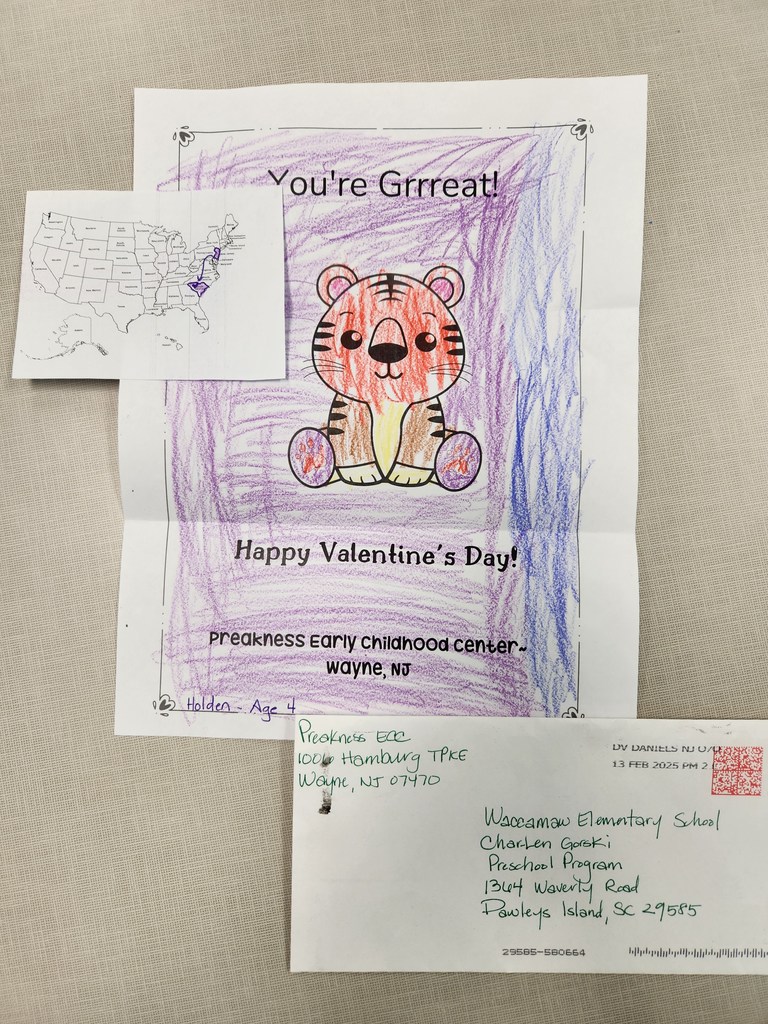 You're Grrreat!
Happy Valentine's Day!
Preakness Early Childhood Center~
Wayne, NJ
Holden - Age 4
Preakness ECC
1006 Hamburg TPKE
Wayne, NJ 07470
DV DANIELS NJ 070
13 FEB 2025 PM 2
Waccamaw Elementary School
Charlen Gorski
Preschool Program
1364 Waverly Road
Pawleys Island, SC 29585
29585-580664